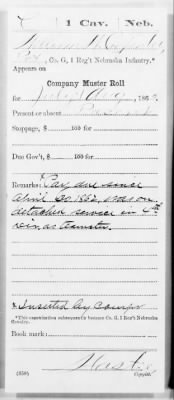 1 Cav. Neb.
Pvt, Co. G, 1 Reg't Nebraska Infantry.*
Appears on
Company Muster Roll
for July & Aug, 186
Present or absent Present
Stoppage, $ 100 for
Due Gov't, $ 100 for
Remarks: Pay due since
April 30. 1862, was on
detached service in
div. as teamster.
* Inserted by Comp'r
*This organization subsequently became Co. G, 1 Reg't Nebraska
Cavalry.
Book mark:
(358)
Copyist.